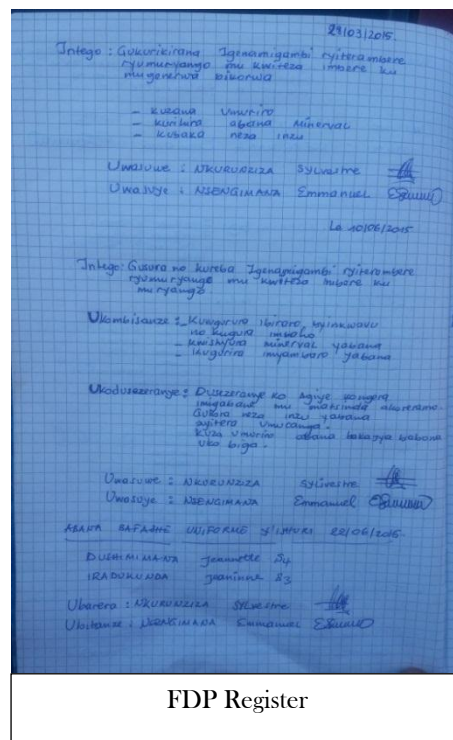 29/03/2015.
Intego : Gukurikirana Igenamigambi ryiterambere
ryumuryango mu kwiteza imbere ku
mugenerwa bikorwa
- kuzana umuriro
- kurihira abana Minerval
- kubaka neza inzu
Uwasuwe : NKURUNZIZA Sylvestre
Uwasuye : NSENGIMANA Emmanuel
Le 10/06/2015
Intego: Gusura no kureba Igenamigambi ryiterambere
ryumuryango mu kwiteza imbere ku
muryango
Uko mbisanze : - Kuvugurura ibiraro byinkwavu
no kugura imbaho
- kwishyura minerval yabana
- kugurira imyambaro yabana
Uko dusezeranye : Dusezeranye ko agiye kongera
imigabane mu matsinda aboreramo
Gukora neza inzu yabana
umucanga.
Kuza umuriro abana bakajya babona
uko biga.
Uwasuwe : NKURUNZIZA Sylvestre
Uwasuye : NSENGIMANA Emmanuel
ABANA BAFASHE UNIFORME Y'ISHURI 22/06/2015.
DUSHIMIMANA Jeannette S4
IRADUKUNDA Jeaninne S3
Ubarera : NKURUNZIZA Sylvestre
Ubitanze : NSENGIMANA Emmanuel
FDP Register